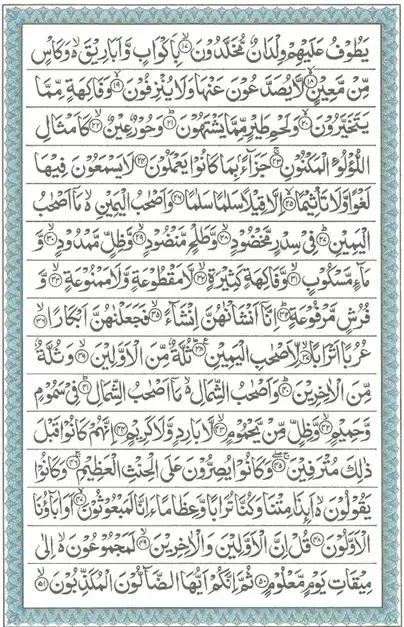 يَطُوْفُ عَلَيْهِمْ وِلْدَانٌ مُّخَلَّدُوْنَ ۙ﴿۱۷﴾ بِاَكْوَابٍ وَّاَبَارِيْقَ ۙ۬ وَكَاْسٍ
مِّنْ مَّعِيْنٍ ۙ﴿۱۸﴾ لَّا يُصَدَّعُوْنَ عَنْهَا وَلَا يُنْزِفُوْنَ ۙ﴿۱۹﴾ وَفَاكِهَةٍ مِّمَّا
يَتَخَيَّرُوْنَ ۙ﴿۲۰﴾ وَلَحْمِ طَيْرٍ مِّمَّا يَشْتَهُوْنَ ؕ﴿۲۱﴾ وَحُوْرٌ عِيْنٌ ۙ﴿۲۲﴾ كَاَمْثَالِ
اللُّؤْلُؤِ الْمَكْنُوْنِ ۚ﴿۲۳﴾ جَزَآءًۢ بِمَا كَانُوْا يَعْمَلُوْنَ ﴿۲۴﴾ لَا يَسْمَعُوْنَ فِيْهَا
لَغْوًا وَّلَا تَاْثِيْمًا ۙ﴿۲۵﴾ اِلَّا قِيْلًا سَلٰمًا سَلٰمًا ﴿۲۶﴾ وَاَصْحٰبُ الْيَمِيْنِ ۙ۬ مَاۤ اَصْحٰبُ
الْيَمِيْنِ ؕ﴿۲۷﴾ فِيْ سِدْرٍ مَّخْضُوْدٍ ۙ﴿۲۸﴾ وَّطَلْحٍ مَّنْضُوْدٍ ۙ﴿۲۹﴾ وَّظِلٍّ مَّمْدُوْدٍ ۙ﴿۳۰﴾ وَّ
مَآءٍ مَّسْكُوْبٍ ۙ﴿۳۱﴾ وَّفَاكِهَةٍ كَثِيْرَةٍ ۙ﴿۳۲﴾ لَّا مَقْطُوْعَةٍ وَّلَا مَمْنُوْعَةٍ ۙ﴿۳۳﴾ وَّ
فُرُشٍ مَّرْفُوْعَةٍ ؕ﴿۳۴﴾ اِنَّاۤ اَنْشَاْنٰهُنَّ اِنْشَآءً ۙ﴿۳۵﴾ فَجَعَلْنٰهُنَّ اَبْكَارًا ۙ﴿۳۶﴾
عُرُبًا اَتْرَابًا ۙ﴿۳۷﴾ لِّاَصْحٰبِ الْيَمِيْنِ ؕ﴿۳۸﴾ ثُلَّةٌ مِّنَ الْاَوَّلِيْنَ ۙ﴿۳۹﴾ وَثُلَّةٌ
مِّنَ الْاٰخِرِيْنَ ؕ﴿۴۰﴾ وَاَصْحٰبُ الشِّمَالِ ۙ۬ مَاۤ اَصْحٰبُ الشِّمَالِ ؕ﴿۴۱﴾ فِيْ سَمُوْمٍ
وَّحَمِيْمٍ ۙ﴿۴۲﴾ وَّظِلٍّ مِّنْ يَّحْمُوْمٍ ۙ﴿۴۳﴾ لَّا بَارِدٍ وَّلَا كَرِيْمٍ ﴿۴۴﴾ اِنَّهُمْ كَانُوْا قَبْلَ
ذٰلِكَ مُتْرَفِيْنَ ۚۖ﴿۴۵﴾ وَكَانُوْا يُصِرُّوْنَ عَلَى الْحِنْثِ الْعَظِيْمِ ۚ﴿۴۶﴾ وَكَانُوْا
يَقُوْلُوْنَ ۙ۬ اَئِذَا مِتْنَا وَكُنَّا تُرَابًا وَّعِظَامًا ءَاِنَّا لَمَبْعُوْثُوْنَ ۙ﴿۴۷﴾ اَوَاٰبَآؤُنَا
الْاَوَّلُوْنَ ﴿۴۸﴾ قُلْ اِنَّ الْاَوَّلِيْنَ وَالْاٰخِرِيْنَ ۙ﴿۴۹﴾ لَمَجْمُوْعُوْنَ ۙ۬ اِلٰى
مِيْقَاتِ يَوْمٍ مَّعْلُوْمٍ ﴿۵۰﴾ ثُمَّ اِنَّكُمْ اَيُّهَا الضَّآلُّوْنَ الْمُكَذِّبُوْنَ ۙ﴿۵۱﴾